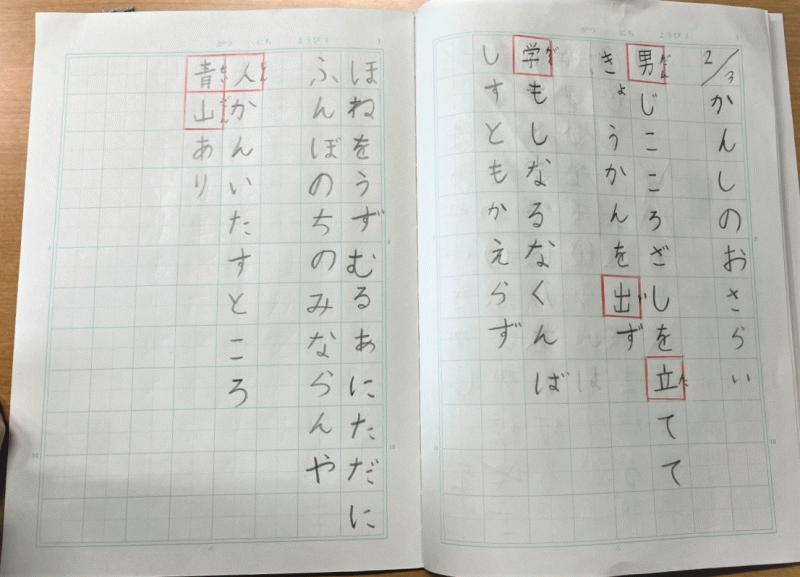 2/3 かんしのおさらい
男じこころざしを立てて
きょうかんを出ず
学もしなるなくんば
しすともかえらず
ほねをうずむるあにただに
ふんぼのちのみならんや
人かんいたすところ
青山あり